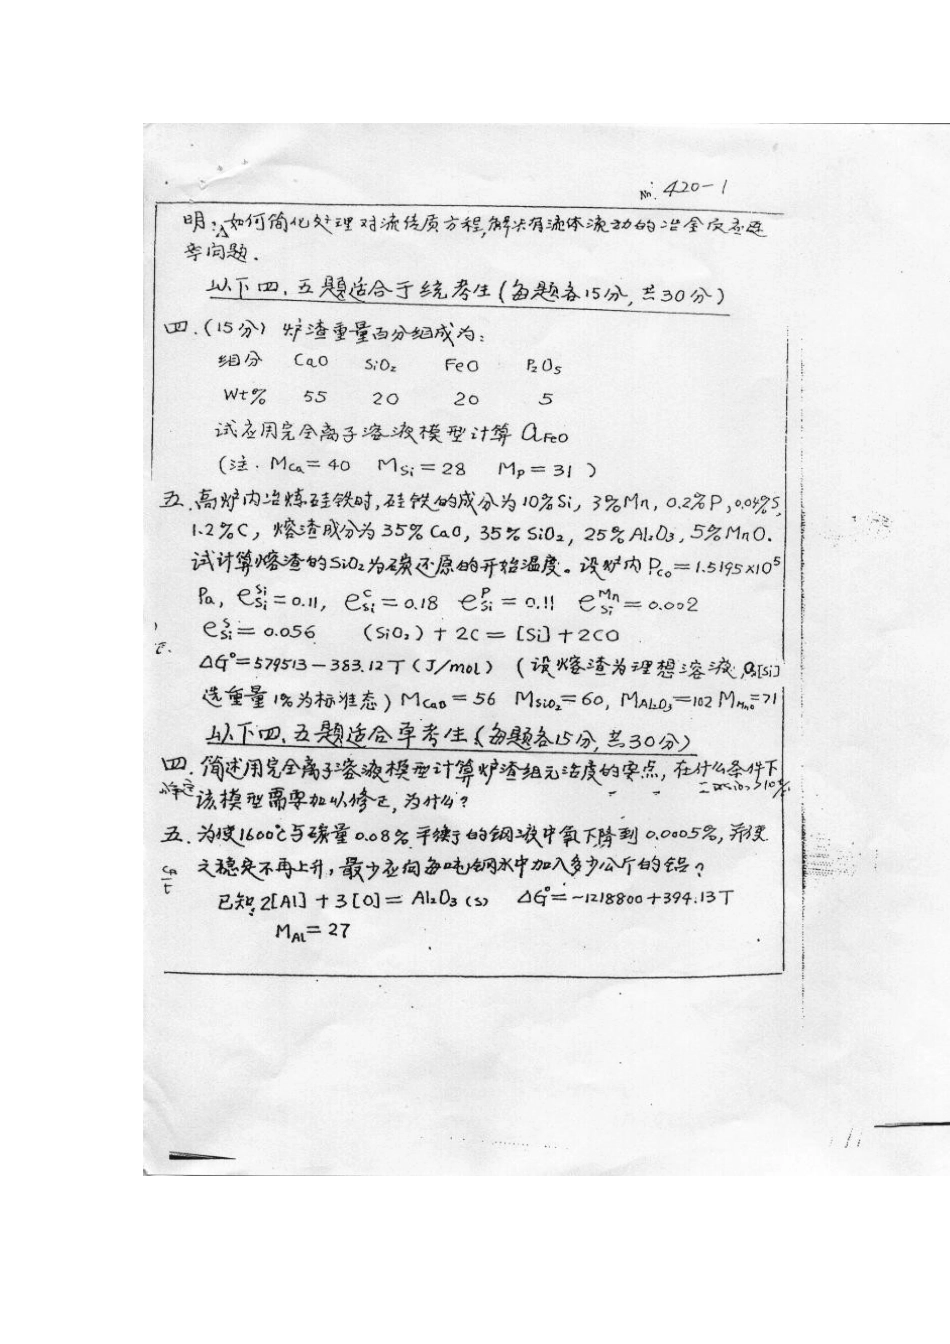 No: 420-1
明:如何简化处理对流传质方程,解决有流体流动的冶金反应速
率问题.
以下四.五题适合于统考生(每题各15分,共30分)
四.(15分) 炉渣重量百分组成为:
组分 CaO SiO₂ FeO P₂O₅
Wt% 55 20 20 5
试应用完全离子溶液模型计算 aFeO
(注. MCa=40 MSi=28 MP=31)
五.高炉内冶炼硅铁时,硅铁的成分为10%Si, 3%Mn, 0.2%P, 0.04%S,
1.2%C, 熔渣成分为35%CaO, 35%SiO₂, 25%Al₂O₃, 5%MnO.
试计算熔渣的SiO₂为碳还原的开始温度。设炉内 Pco=1.5195×10⁵
Pa, eSiSi=0.11, eCSi=0.18 ePSi=0.11 eMnSi=0.002
eSSi=0.056 (SiO₂)+2C=[Si]+2CO
ΔG°=579513-383.12T (J/mol) (设熔渣为理想溶液, a[Si]
选重量1%为标准态) MCaO=56 MSiO₂=60, MAl₂O₃=102 MMnO=71
以下四.五题适合单考生(每题各15分,共30分)
四.简述用完全离子溶液模型计算炉渣组元活度的要点,在什么条件下
该模型需要加以修正,为什么?
五.为使1600℃与碳量0.08%平衡的钢液中氧下降到0.0005%,并使
之稳定不再上升,最少应向每吨钢水中加入多少公斤的铝?
已知:2[Al]+3[O]=Al₂O₃(s) ΔG°=-1218800+394.13T
MAl=27